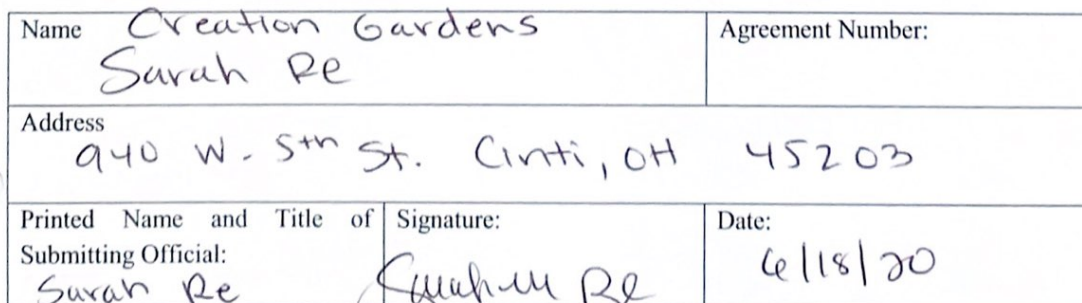 Name Creation Gardens
Sarah Re
Agreement Number:
Address
940 W. 5th St. Cinti, OH 45203
Printed Name and Title of
Submitting Official:
Sarah Re
Signature:
Re
Date:
6/18/20